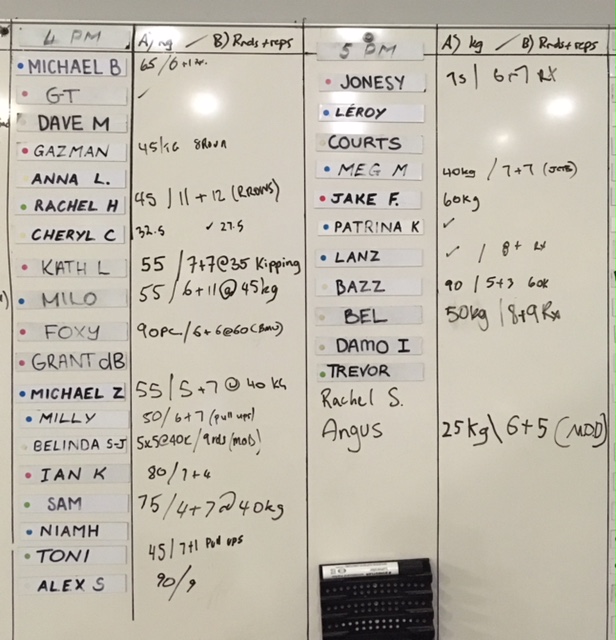 4 PM A) kg B) Rnds + reps
MICHAEL B 65 / 6 +
GT ✓
DAVE M
GAZMAN 45kg
ANNA L.
RACHEL H 45 / 11 + 12 (RROWS)
CHERYL C 32.5 ✓ 27.5
KATH L 55 / 7+7 @ 35 Kipping
MILO 55 / 6+11 @ 45kg
FOXY 90PC / 6+6 @ 60
GRANT dB
MICHAEL Z 55 / 5+7 @ 40 kg
MILLY 50 / 6+7 (pull ups)
BELINDA S-J 5x5@40 / 9rds (mod)
IAN K 80 / 7+4
SAM 75 / 4+7 @ 40kg
NIAMH
TONI 45 / 7+1 Pull ups
ALEX S 90 / 9
5 PM A) kg / B) Rnds + reps
JONESY 75 | 6+7 RX
LEROY
COURTS
MEG M 40kg / 7+7
JAKE F. 60kg
PATRINA K ✓
LANZ ✓ / 8+ Rx
BAZZ 90 | 5+3 60k
BEL 50kg / 8+9 Rx
DAMO I
TREVOR
Rachel S.
Angus 25 Kg \ 6+5 (MOD)